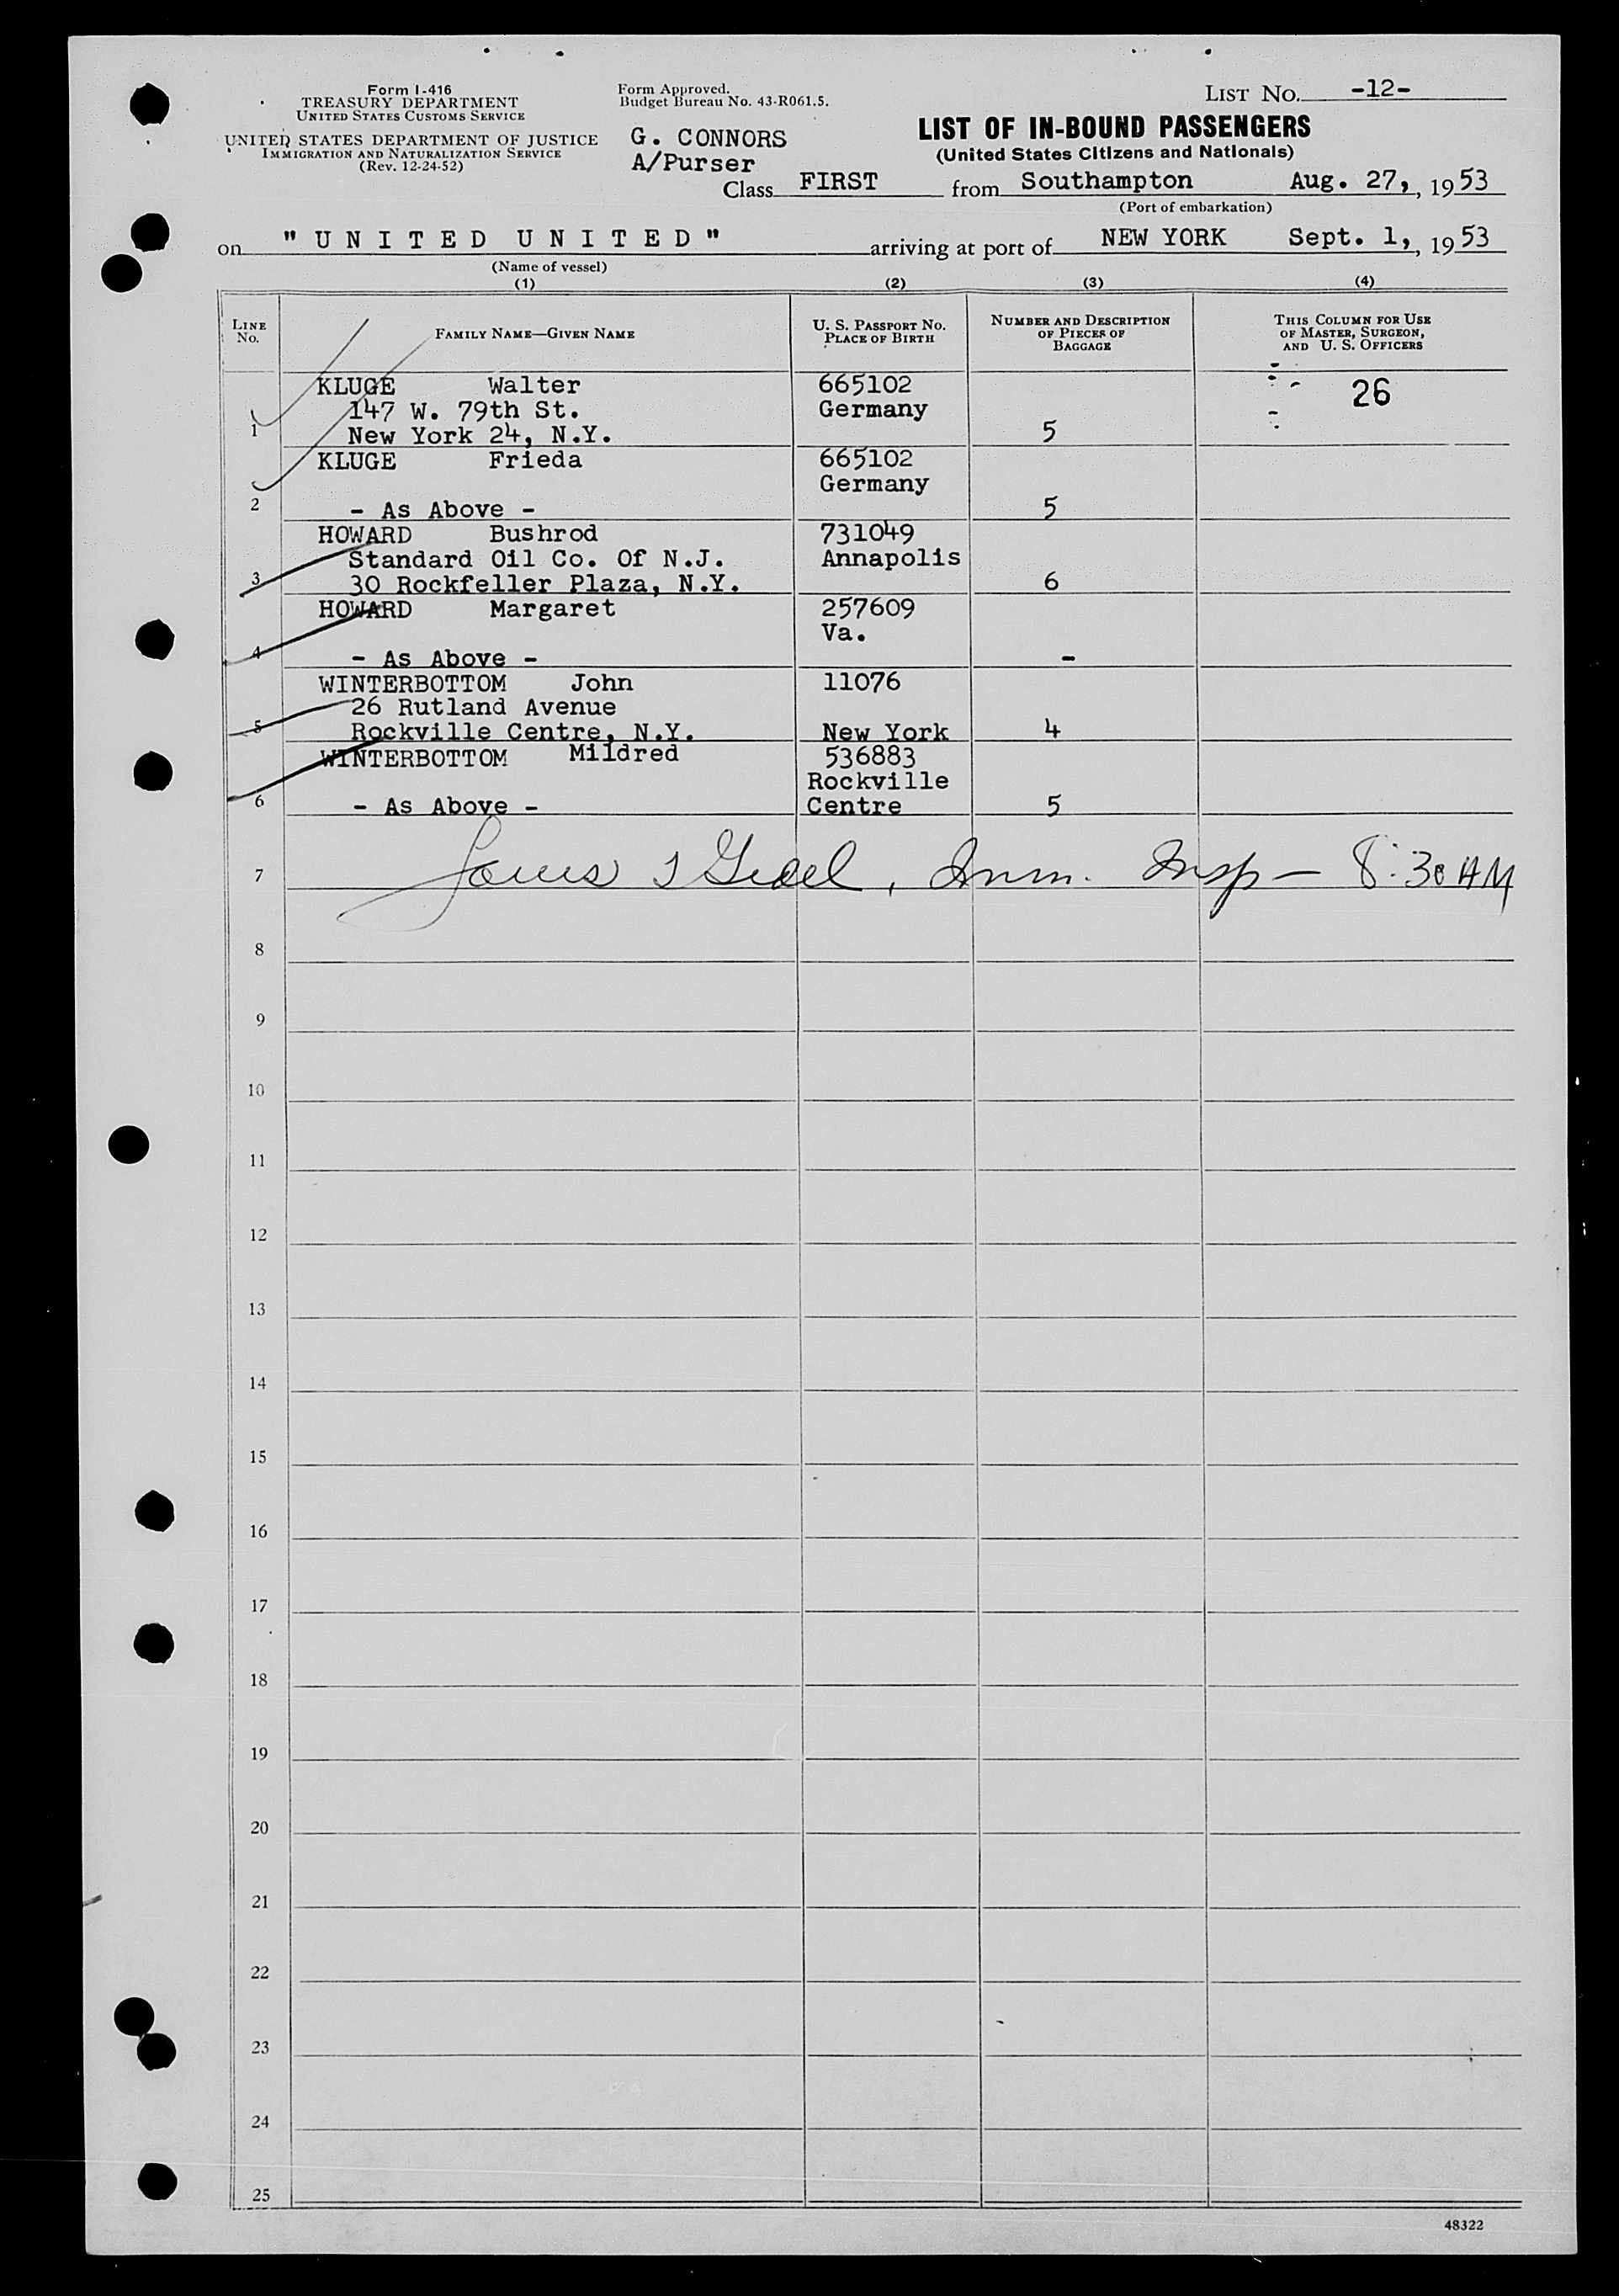 Form I-416
TREASURY DEPARTMENT
UNITED STATES CUSTOMS SERVICE
UNITED STATES DEPARTMENT OF JUSTICE
IMMIGRATION AND NATURALIZATION SERVICE
(Rev. 12-24-52)
Form Approved.
Budget Bureau No. 43-R061.5.
G. CONNORS
A/Purser
LIST NO. -12-
LIST OF IN-BOUND PASSENGERS
(United States Citizens and Nationals)
Class FIRST from Southampton Aug. 27, , 1953
(Port of embarkation)
on "UNITED UNITED" arriving at port of NEW YORK Sept. 1, , 1953
(Name of vessel)
(1) (2) (3) (4)
LINE NO. FAMILY NAME—GIVEN NAME U. S. PASSPORT NO. PLACE OF BIRTH NUMBER AND DESCRIPTION OF PIECES OF BAGGAGE THIS COLUMN FOR USE OF MASTER, SURGEON, AND U. S. OFFICERS
KLUGE Walter 665102 26
147 W. 79th St. Germany
1 New York 24, N.Y. 5
KLUGE Frieda 665102
Germany
2 - As Above - 5
HOWARD Bushrod 731049
Standard Oil Co. Of N.J. Annapolis
3 30 Rockfeller Plaza, N.Y. 6
HOWARD Margaret 257609
Va.
4 - As Above - -
WINTERBOTTOM John 11076
26 Rutland Avenue
5 Rockville Centre, N.Y. New York 4
WINTERBOTTOM Mildred 536883
Rockville
6 - As Above - Centre 5
7 Imm. Insp — 8:30 AM
8
9
10
11
12
13
14
15
16
17
18
19
20
21
22
23
24
25
48322